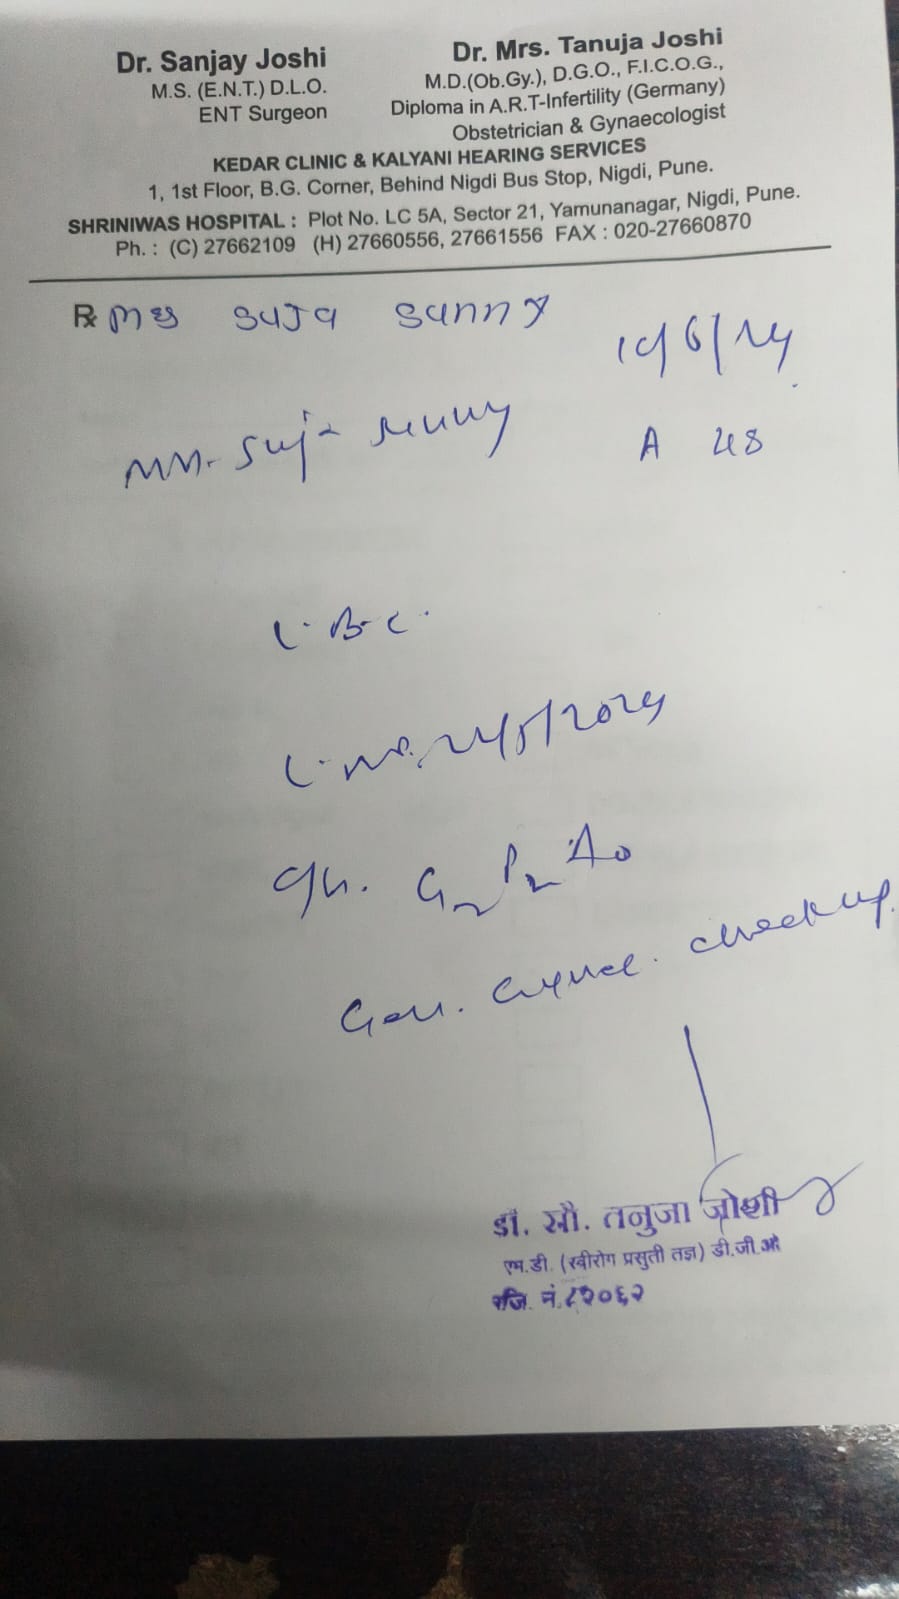 Dr. Sanjay Joshi
M.S. (E.N.T.) D.L.O.
ENT Surgeon
Dr. Mrs. Tanuja Joshi
M.D.(Ob.Gy.), D.G.O., F.I.C.O.G.,
Diploma in A.R.T-Infertility (Germany)
Obstetrician & Gynaecologist
KEDAR CLINIC & KALYANI HEARING SERVICES
1, 1st Floor, B.G. Corner, Behind Nigdi Bus Stop, Nigdi, Pune.
SHRINIWAS HOSPITAL : Plot No. LC 5A, Sector 21, Yamunanagar, Nigdi, Pune.
Ph. : (C) 27662109 (H) 27660556, 27661556 FAX : 020-27660870
℞ suja sunny
Suja
A 48
C.B.C.
G2 P2 A0
Gen. checkup.
डॉ. सौ. तनुजा जोशी
एम.डी. (स्त्रीरोग प्रसुती तज्ञ) डी.जी.ओ
रजि. नं.